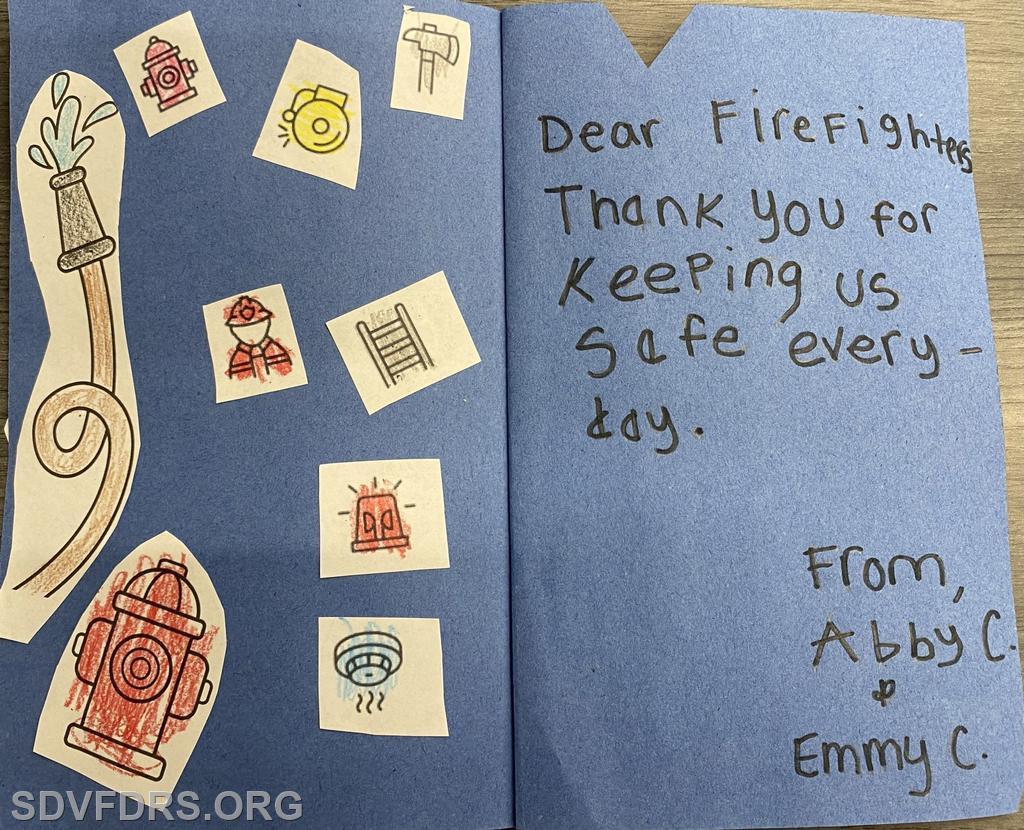 Dear FireFighters
Thank you for
Keeping us
safe every-
day.
From,
Abby C.
&
Emmy C.
SDVFDRS.ORG